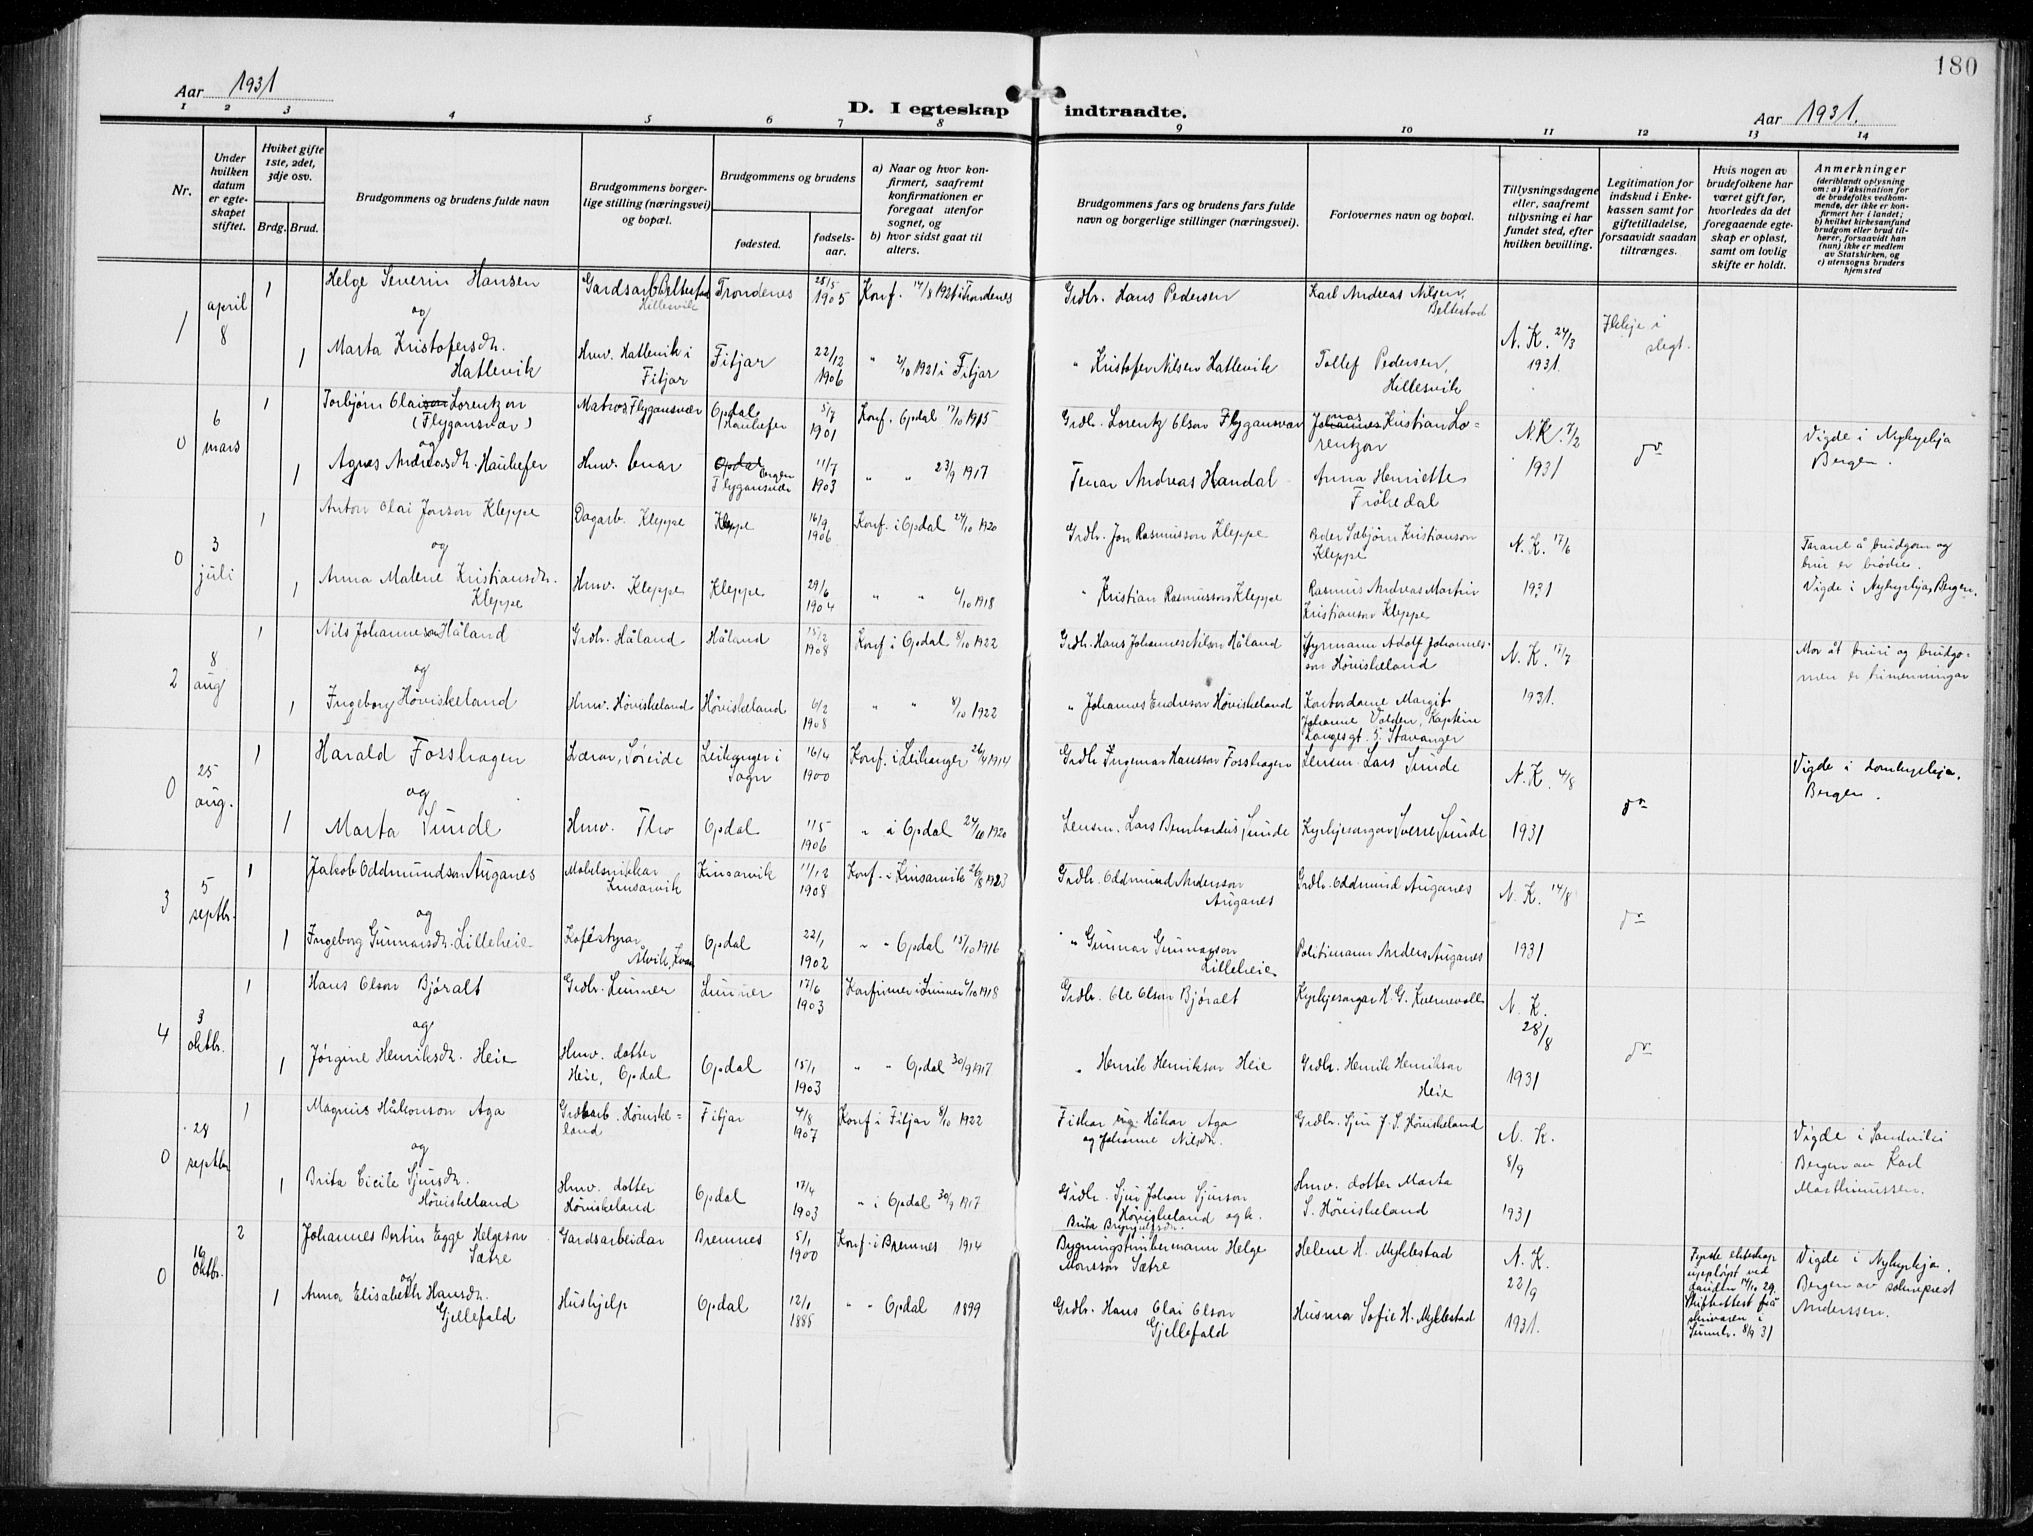 180
Aar 1931
D. I egteskap indtraadte.
Aar 1931.
1 2 3 4 5 6 7 8 9 10 11 12 13 14
Nr.
Under hvilken datum er egte-skapet stiftet.
Hviket gifte 1ste, 2det, 3dje osv.
Brdg. Brud.
Brudgommens og brudens fulde navn
Brudgommens borger-lige stilling (næringsvei) og bopæl.
Brudgommens og brudens
fødested.
fødsels-aar.
a) Naar og hvor kon-firmert, saafremt konfirmationen er foregaat utenfor sognet, og
b) hvor sidst gaat til alters.
Brudgommens fars og brudens fars fulde navn og borgerlige stillinger (næringsvei).
Forlovernes navn og bopæl.
Tillysningsdagene eller, saafremt tillysning ei har fundet sted, efter hvilken bevilling.
Legitimation for indskud i Enke-kassen samt for giftetilladelse, forsaavidt saadan tiltrænges.
Hvis nogen av brudefolkene har været gift før, hvorledes da det foregaaende egte-skap er opløst, samt om lovlig skifte er holdt.
Anmerkninger
(deriblandt oplysning om: a) Vaksination for de brudefolks vedkom-mende, der ikke er kon-firmert her i landet; b) hvilket kirkesamfund brudgom eller brud til-hører, forsaavidt han (hun) ikke er medlem av Statskirken, og c) utensogns bruders hjemsted
1 april 8 1 Helge Severin Hansen Gardsarb. Hillesvik Trondenes 25/5 1905 Konf. 14/8 1921 i Trondenes Grdbr. Hans Pedersen Karl Andreas Nilsen, Beltestad N. K. 24/3 1931 Ikkje i slegt.
og
1 Marta Kristofersdtr. Hatlevik Hmv. Hatlevik i Fitjar Fitjar 22/12 1906 " 2/10 1921 i Fitjar " Kristofer Nilsen Hatlevik Tollef Pedersen, Hillesvik
0 6 mars 1 Torbjørn Olai Lorentzon (Flygansvær) Matros, Flygansvær Opdal Haukefer 5/7 1901 Konf. Opdal 17/10 1915 Grdbr. Lorentz Olson Flygansvær Jonas Kristian Lorentzon N. K. 7/2 1931 do Vigde i Nykyrkja Bergen.
og
1 Agnes Andreasdtr. Haukefer Hmv. Opdal Bergen Flygansvær 11/7 1903 " " 23/9 1917 Andreas Handal Anna Henriette Frøkedal
0 3 juli 1 Anton Olai Jonson Kleppe Dagarb. Kleppe Kleppe 16/9 1906 Konf. i Opdal 24/10 1920 Grdbr. Jon Rasmusson Kleppe Peder Sæbjørn Kristianson Kleppe N. K. 17/6 1931 Farane å brudgom og brur er brødre. Vigde i Nykyrkja, Bergen.
og
1 Anna Malene Kristiansdtr. Kleppe Hmv. Kleppe Kleppe 29/6 1904 " " 6/10 1918 " Kristian Rasmusson Kleppe Rasmus Andreas Martin Kristianson Kleppe
2 8 aug 1 Nils Johanneson Håland Grdbr. Håland Håland 15/2 1908 Konf i Opdal 8/10 1922 Grdbr. Hans Johannes Nilson Håland Styrmann Adolf Johannes-son Høviskeland N. K. 17/7 1931. Mor åt bruri og brudgo-men er trimenningar
og
1 Ingeborg Høviskeland Hmv. Høviskeland Høviskeland 6/2 1908 " " 8/10 1922 " Johannes Endreson Høviskeland Kontordame Margit Johanne Valden, Kaptein Langesgt. 5. Stavanger
0 25 aug. 1 Harald Fosshagen Lærar, Søreide Leikanger i Sogn 16/4 1900 Konf. i Leikanger 26/4 1914 Grdbr Ingemar Hansson Fosshagen Lensm. Lars Sunde N. K. 4/8 1931 do Vigde i domkyrkja, Bergen.
og
1 Marta Sunde Hmv. Tho Opdal 11/5 1906 " i Opdal 24/10 1920 Lensm. Lars Bernhardus Sunde Kyrkjesongar Sverre Sunde
3 5 septbr. 1 Jakob Oddmundson Auganes Møbelsnikkar Kinsarvik Kinsarvik 11/12 1908 Konf. i Kinsarvik 26/8 1923 Grdbr. Oddmund Anderson Auganes Grdbr. Oddmund Auganes N. K. 14/8 1931 do
og
1 Ingeborg Gunnarsdtr. Lilleheie Kafestyrar Ålvik, Kvam Opdal 22/1 1902 " " Opdal 15/10 1916 " Gunnar Gunnarson Lilleheie Politimann Anders Auganes
4 3 oktbr. 1 Hans Olson Bjøralt Grdbr. Lunner Lunner 17/6 1903 Konfirmer i Lunner 6/10 1918 Grdbr. Ole Olson Bjøralt Kyrkjesongar H. G. Kvernevoll N. K. 28/8 1931 do
og
1 Jørgine Henriksdtr. Heie Hmv. dotter Heie, Opdal Opdal 15/1 1903 " " Opdal 30/9 1917 " Henrik Henrikson Heie Grdbr. Henrik Henrikson Heie
0 28 septbr 1 Magnus Håkonson Aga Grdbarb. Høviske-land Fitjar 4/8 1907 Konf i Fitjar 8/10 1922 Fiskar Håkon Aga og Johanne Nilsdtr. Grdbr. Sjur J. S. Høviskeland N. K. 8/9 1931 Vigde i Sandviki Bergen av Karl Marthinussen.
og
1 Brita Cicilie Sjursdtr. Høviskeland Hmv. dotter Høviskeland Opdal 17/4 1903 " i Opdal 30/9 1917 Grdbr. Sjur Johan Sjurson Høviskeland og k. Brita Brynjulvsdtr. Hmv. dotter Marta S. Høviskeland
0 16 oktbr. 2 Johannes Bertin Egge Helgeson Sætre Gardsarbeidar Bremnes 5/1 1900 Konf. i Bremnes 1914 Bygningstimbermann Helge Monsson Sætre Helene H. Myklestad N. K. 22/9 1931. Fyrste ekteskap uppløyst ved dauden 17/10 29. Skifteattest frå skrivaren i Sunnh. 8/9 31 Vigde i Nykyrkja, Bergen av sokneprest Anderssen.
og
1 Anna Elisabeth Hansdtr. Gjellefald Hushjelp Opdal 12/1 1885 " " Opdal 1899 Grdbr. Hans Olai Olson Gjellefald Husmor Sofie H. Myklestad